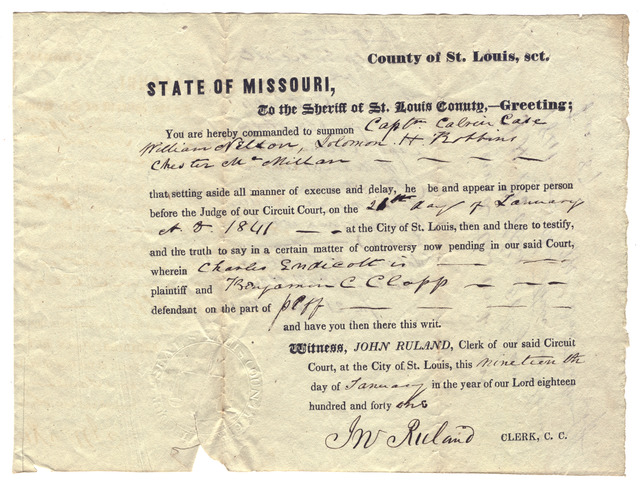 County of St. Louis, sct.
STATE OF MISSOURI,
To the Sheriff of St. Louis Conuty,—Greeting;
You are hereby commanded to summon Captn Calvin Case
William Nelson, Solomon H Robbins
Chester McMillan
that setting aside all manner of execuse and delay, he be and appear in proper person
before the Judge of our Circuit Court, on the 21th day of January
A D 1841 at the City of St. Louis, then and there to testify,
and the truth to say in a certain matter of controversy now pending in our said Court,
wherein Charles Endicott is
plaintiff and Benjamin C Clapp
defendant on the part of plff
and have you then there this writ.
Witness, JOHN RULAND, Clerk of our said Circuit
Court, at the City of St. Louis, this nineteenth
day of January in the year of our Lord eighteen
hundred and forty one
Jno Ruland CLERK, C. C.